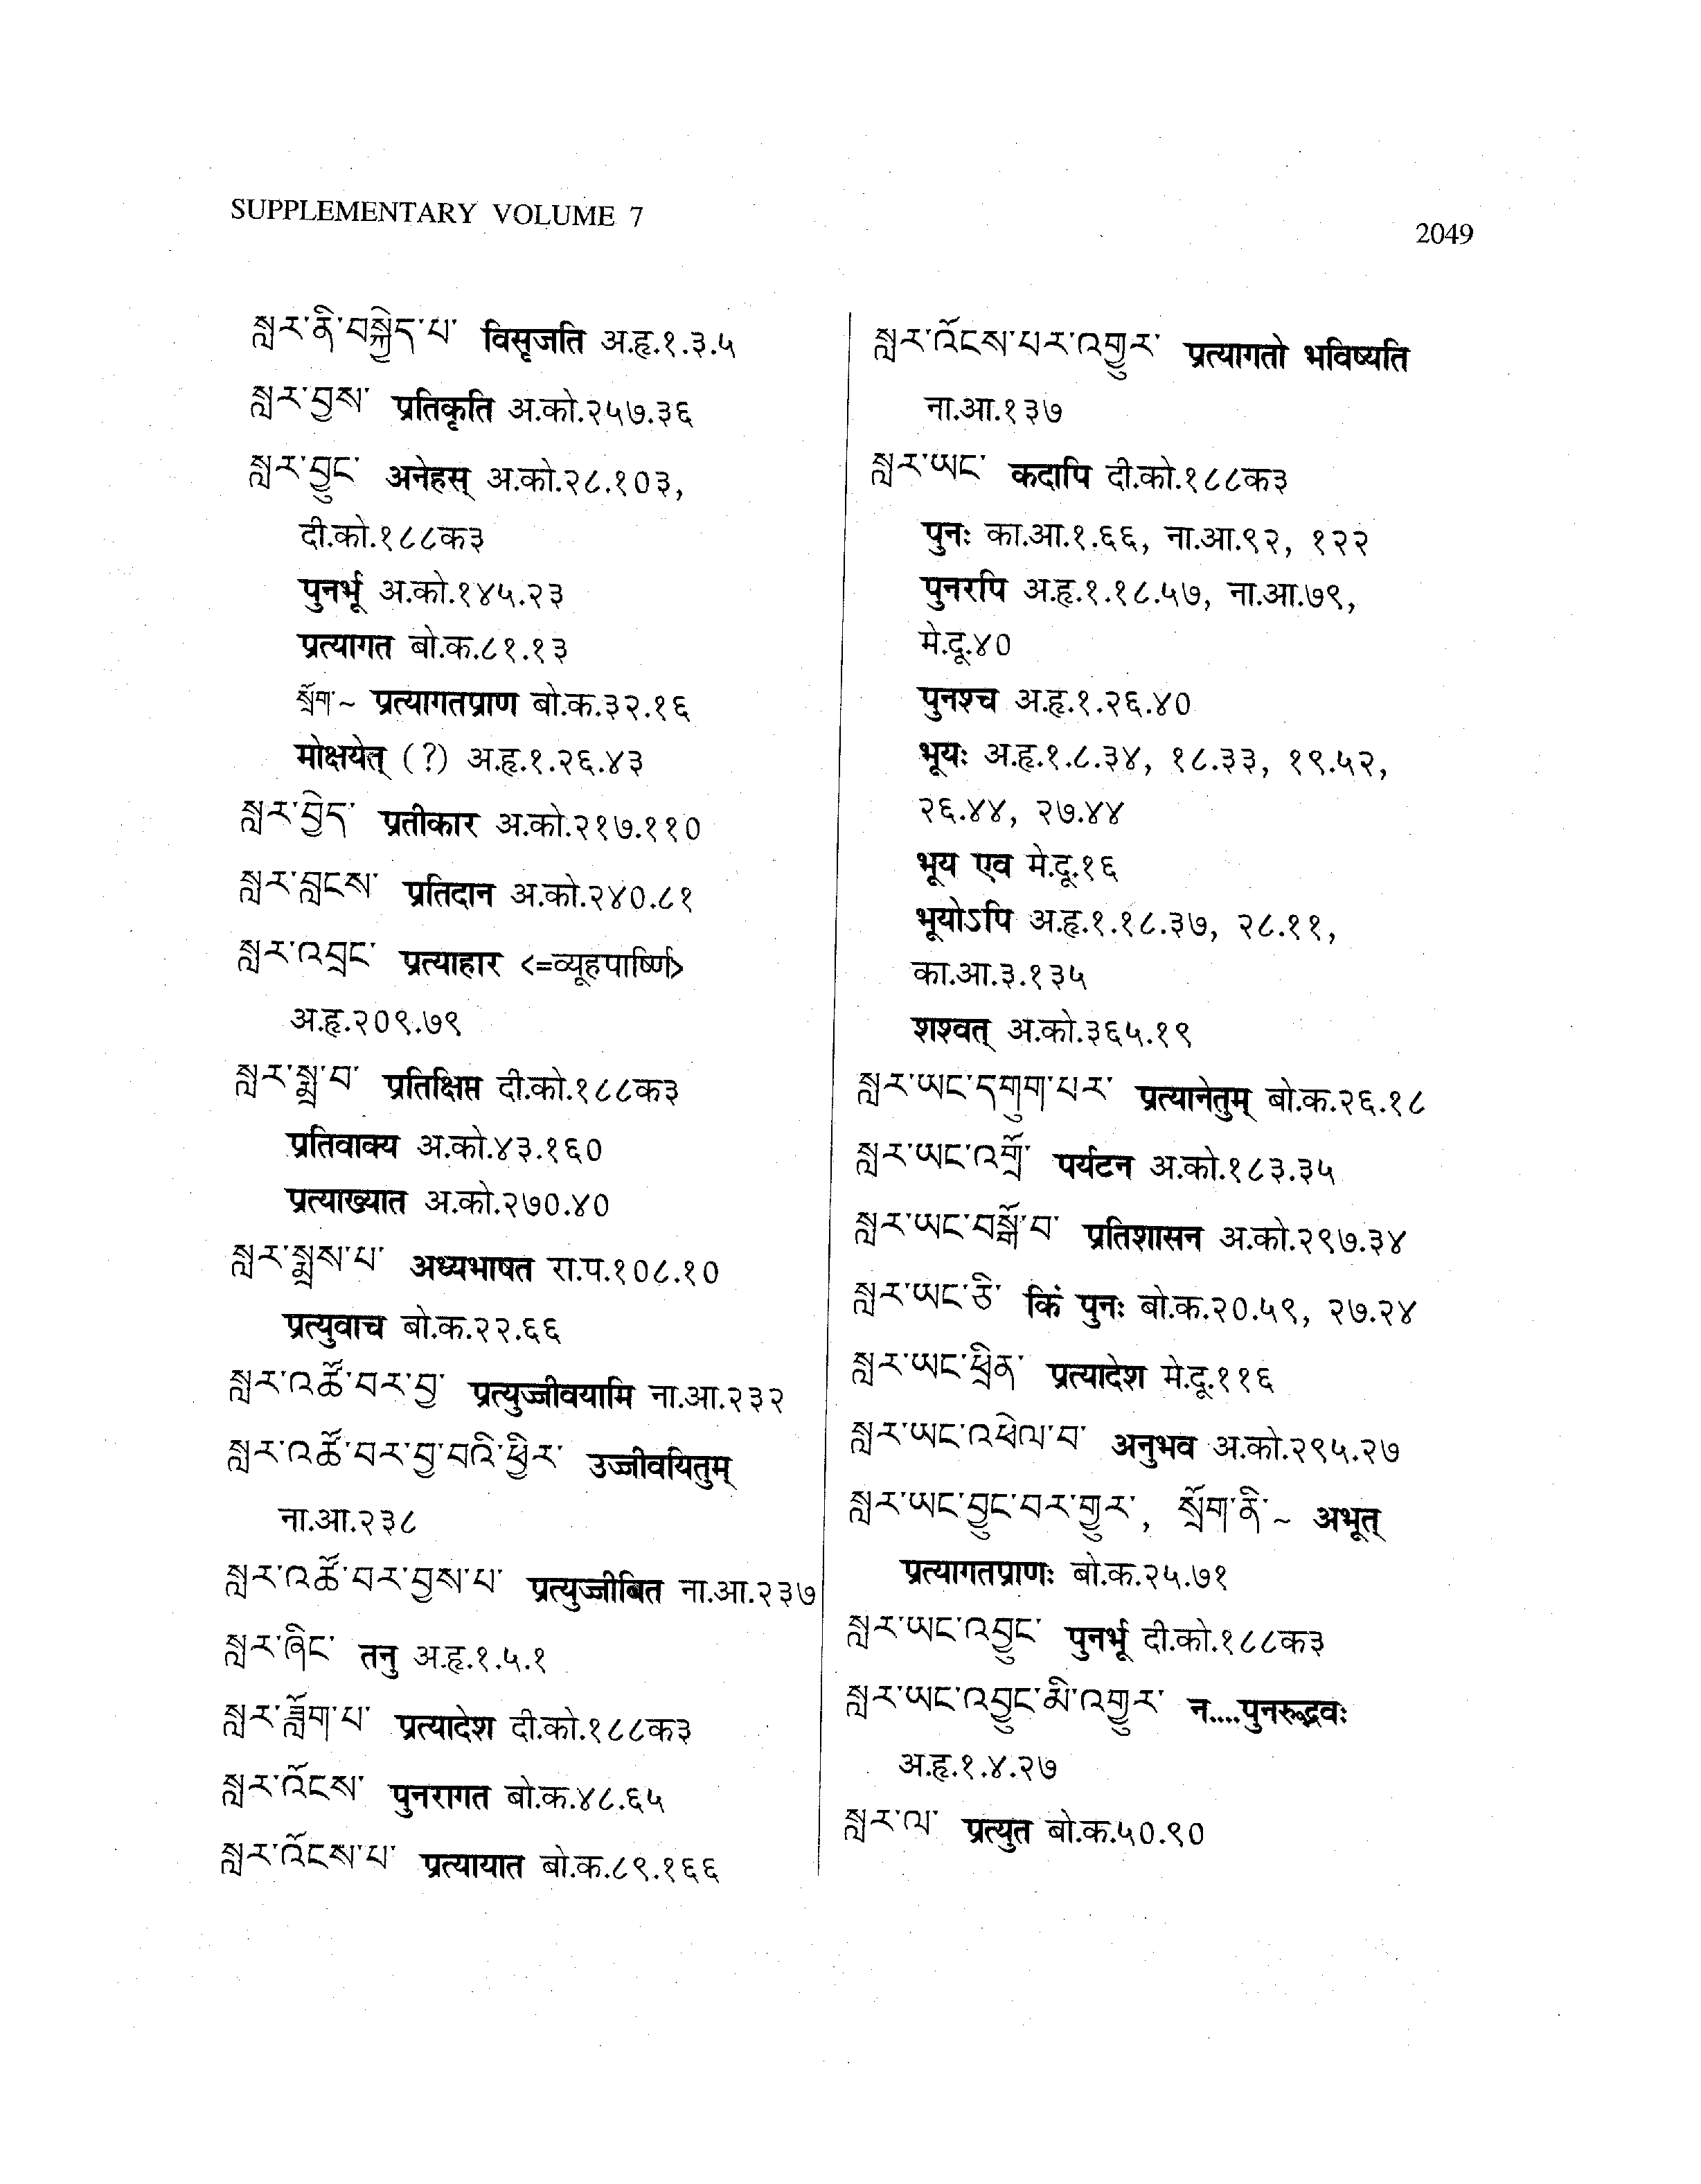 SUPPLEMENTARY VOLUME 7
2049
སླར་ནི་བསྐྱེད་པ་ विसृजति अ.हृ.१.३.५
སླར་བྱས་ प्रतिकृति अ.को.२५७.३६
སླར་བྱུང་ अनेहस् अ.को.२८.१०३,
दी.को.१८८क३
पुनर्भू अ.को.१४५.२३
प्रत्यागत बो.क.८१.१३
སྲོག་~ प्रत्यागतप्राण बो.क.३२.१६
मोक्षयेत् (?) अ.हृ.१.२६.४३
སླར་བྱེད་ प्रतीकार अ.को.२१७.११०
སླར་བླངས་ प्रतिदान अ.को.२४०.८१
སླར་འབྲང་ प्रत्याहार <=व्यूहपार्ष्णि>
अ.हृ.२०९.७९
སླར་སྨྲ་བ་ प्रतिक्षिप्त दी.को.१८८क३
प्रतिवाक्य अ.को.४३.१६०
प्रत्याख्यात अ.को.२७०.४०
སླར་སྨྲས་པ་ अध्यभाषत रा.प.१०८.१०
प्रत्युवाच बो.क.२२.६६
སླར་འཚོ་བར་བྱ་ प्रत्युज्जीवयामि ना.आ.२३२
སླར་འཚོ་བར་བྱ་བའི་ཕྱིར་ उज्जीवयितुम्
ना.आ.२३८
སླར་འཚོ་བར་བྱས་པ་ प्रत्युज्जीबित ना.आ.२३७
སླར་ཞིང་ तनु अ.हृ.१.५.१
སླར་ཟློག་པ་ प्रत्यादेश दी.को.१८८क३
སླར་འོངས་ पुनरागत बो.क.४८.६५
སླར་འོངས་པ་ प्रत्यायात बो.क.८९.१६६
སླར་འོངས་པར་འགྱུར་ प्रत्यागतो भविष्यति
ना.आ.१३७
སླར་ཡང་ कदापि दी.को.१८८क३
पुनः का.आ.१.६६, ना.आ.९२, १२२
पुनरपि अ.हृ.१.१८.५७, ना.आ.७९,
मे.दू.४०
पुनश्च अ.हृ.१.२६.४०
भूयः अ.हृ.१.८.३४, १८.३३, १९.५२,
२६.४४, २७.४४
भूय एव मे.दू.१६
भूयोऽपि अ.हृ.१.१८.३७, २८.११,
का.आ.३.१३५
शश्वत् अ.को.३६५.१९
སླར་ཡང་དགུག་པར་ प्रत्यानेतुम् बो.क.२६.१८
སླར་ཡང་འགྲོ་ पर्यटन अ.को.१८३.३५
སླར་ཡང་བསྒོ་བ་ प्रतिशासन अ.को.२९७.३४
སླར་ཡང་ཅི་ किं पुनः बो.क.२०.५९, २७.२४
སླར་ཡང་ཕྲིན་ प्रत्यादेश मे.दू.११६
སླར་ཡང་འཕེལ་བ་ अनुभव अ.को.२९५.२७
སླར་ཡང་བྱུང་བར་གྱུར་, སྲོག་ནི་~ अभूत्
प्रत्यागतप्राणः बो.क.२५.७१
སླར་ཡང་འབྱུང་ पुनर्भू दी.को.१८८क३
སླར་ཡང་འབྱུང་མི་འགྱུར་ न....पुनरुद्भवः
अ.हृ.१.४.२७
སླར་ལ་ प्रत्युत बो.क.५०.९०